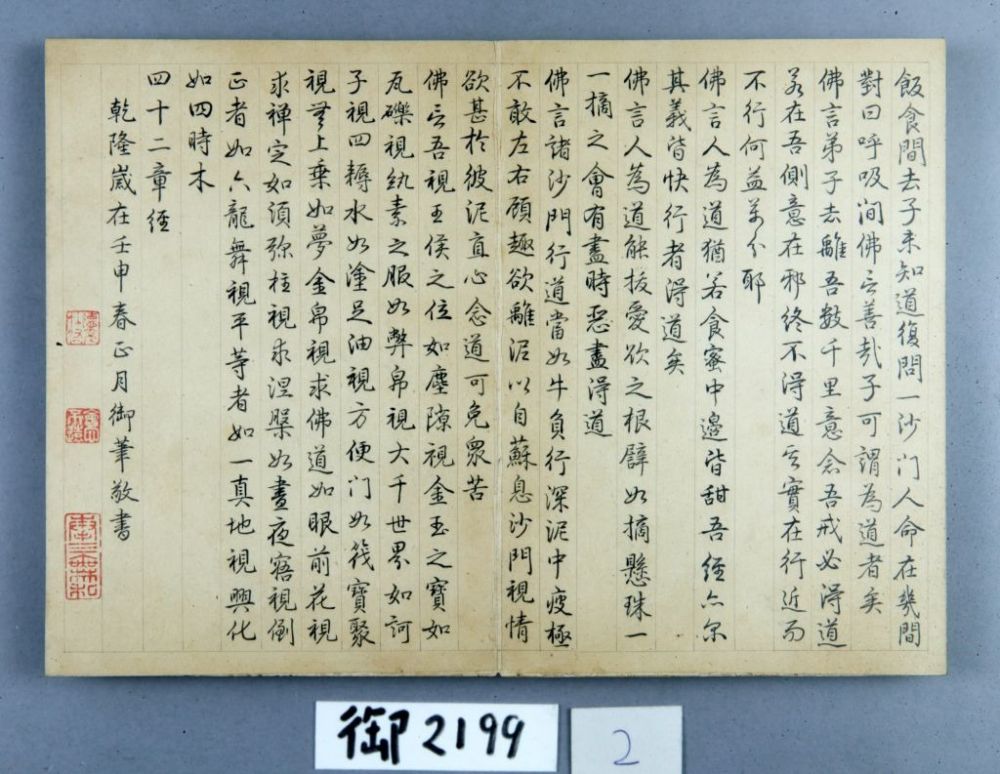 飯食間去子未知道復問一沙门人命在幾間
對曰呼吸间佛言善哉子可謂為道者矣
佛言弟子去離吾數千里意念吾戒必淂道
若在吾側意在邪終不淂道其實在行近而
不行何益萬分耶
佛言人為道猶若食蜜中邊皆甜吾經亦尔
其義皆快行者淂道矣
佛言人為道能拔愛欲之根譬如摘懸珠一
一摘之會有盡時惡盡淂道
佛言諸沙門行道當如牛負行深泥中疲極
不敢左右顧趣欲離泥以自蘇息沙門視情
欲甚於彼泥直心念道可免衆苦
佛言吾視王侯之位如塵隙視金玉之寶如
瓦礫視紈素之服如弊帛視大千世界如訶
子視四耨水如塗足油視方便门如筏寶聚
視無上乗如夢金帛視求佛道如眼前花視
求禅定如須弥柱視求涅槃如晝夜寤視倒
正者如六龍舞視平等者如一真地視興化
如四時木
四十二章經
乾隆嵗在壬申春正月御筆敬書
御2199
2